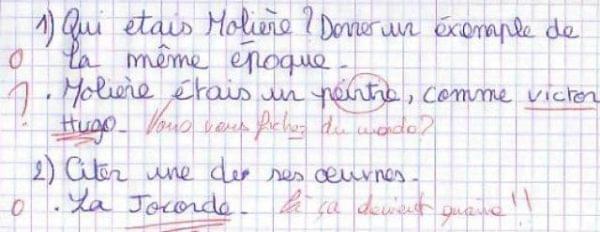 1) Qui étais Molière ? Donner un éxemple de
0 la même époque.
? . Molière étais un peintre, comme victor
Hugo. Vous vous fichez du monde ?
2) Citer une des ses œuvres.
0 . La Joconde. Là ça devient grave !!